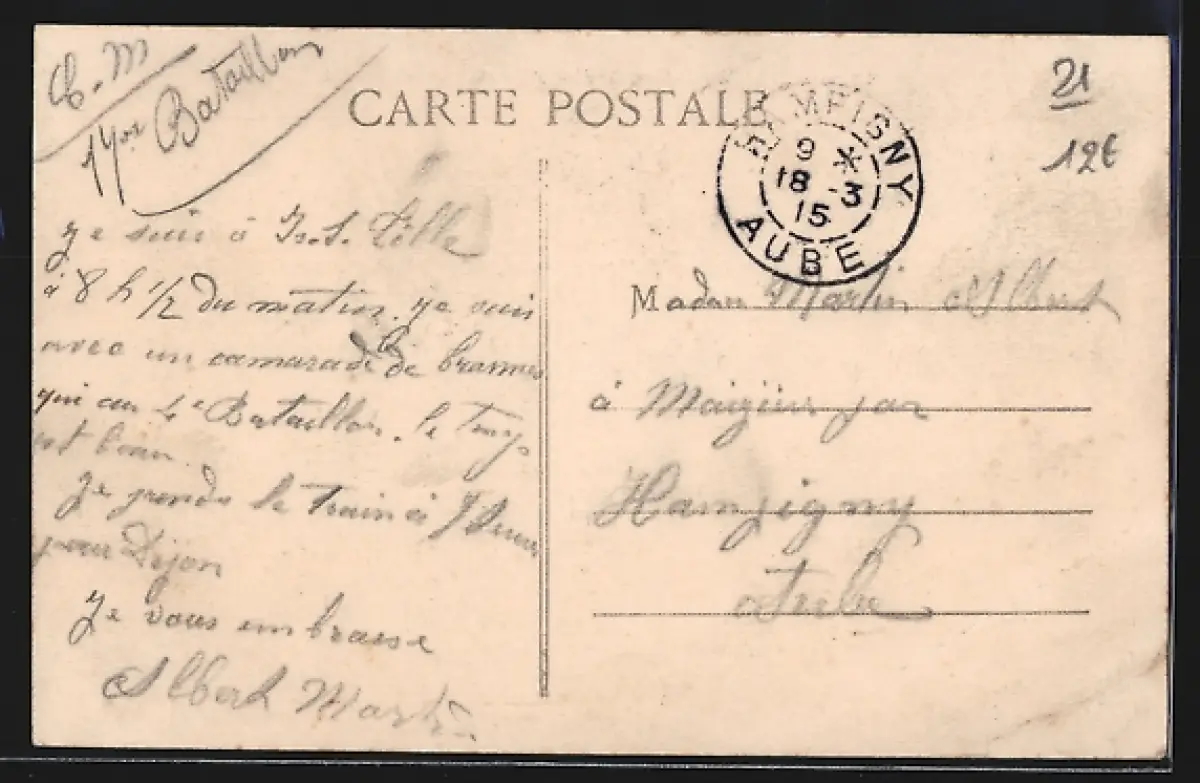 C.M
Bataillon
CARTE POSTALE
21
12€
HAMPIGNY
9 *
18-3
15
AUBE
Je suis à Is.S. Tille
à 8 h 1/2 du matin. Je suis
avec un camarade de
qui au 4e Bataillon. le temps
est beau.
Je prends le train à
pour Dijon
Je vous embrasse
Albert Martin
Madame Martin Albert
à Maizières par
Hampigny
Aube